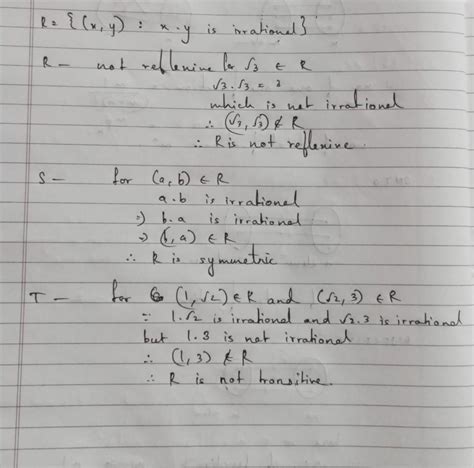 R = {(x, y) : x.y is irrational}
R — not reflexive for √3 ∈ R
√3.√3 = 3
which is not irrational
∴ (√3, √3) ∉ R
∴ R is not reflexive.
S — for (a, b) ∈ R
a.b is irrational
⇒ b.a is irrational
⇒ (b, a) ∈ R
∴ R is symmetric
T — for (1, √2) ∈ R and (√2, 3) ∈ R
∵ 1.√2 is irrational and √2.3 is irrational
but 1.3 is not irrational
∴ (1, 3) ∉ R
∴ R is not transitive.